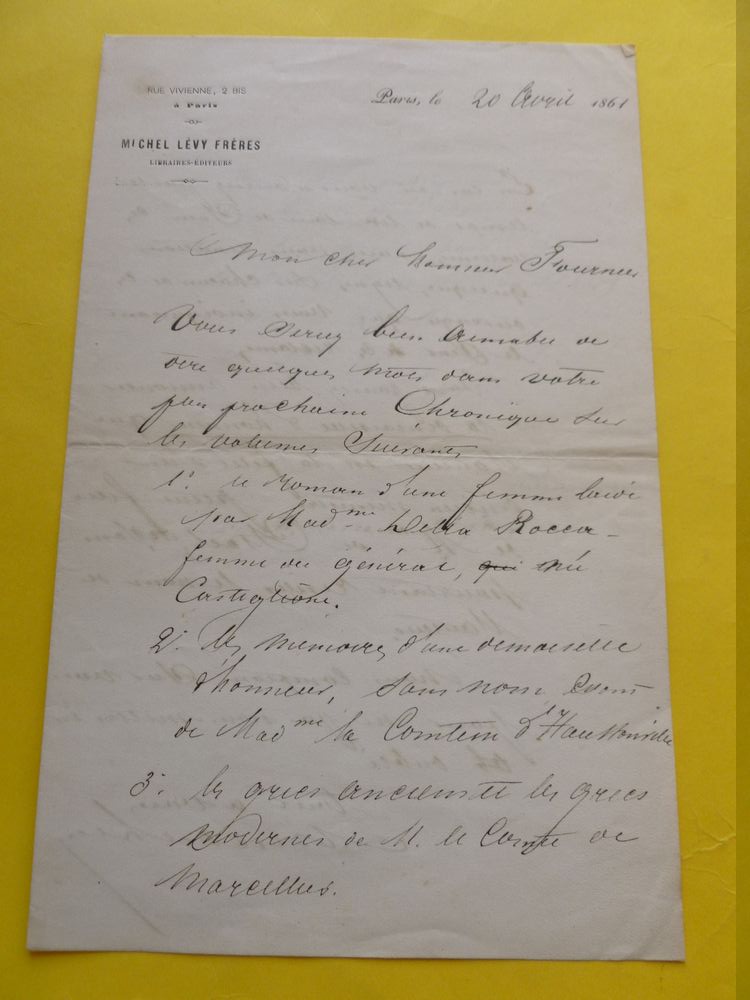 RUE VIVIENNE, 2 BIS
à Paris
MICHEL LÉVY FRÈRES
LIBRAIRES-ÉDITEURS
Paris, le 20 Avril 1861
Mon cher Monsieur Fournier
Vous seriez bien aimable de
dire quelques mots dans votre
plus prochaine Chronique sur
les volumes suivants
1° le roman d'une femme laide
par Mad.me Della Rocca-
femme du général, qui née
Castiglione.
2° les mémoires d'une demoiselle
d'honneur, sans nom
de Mad me la Comtesse d'Haussonville
3° les grecs anciens et les grecs
modernes de M. le Comte de
Marcellus.